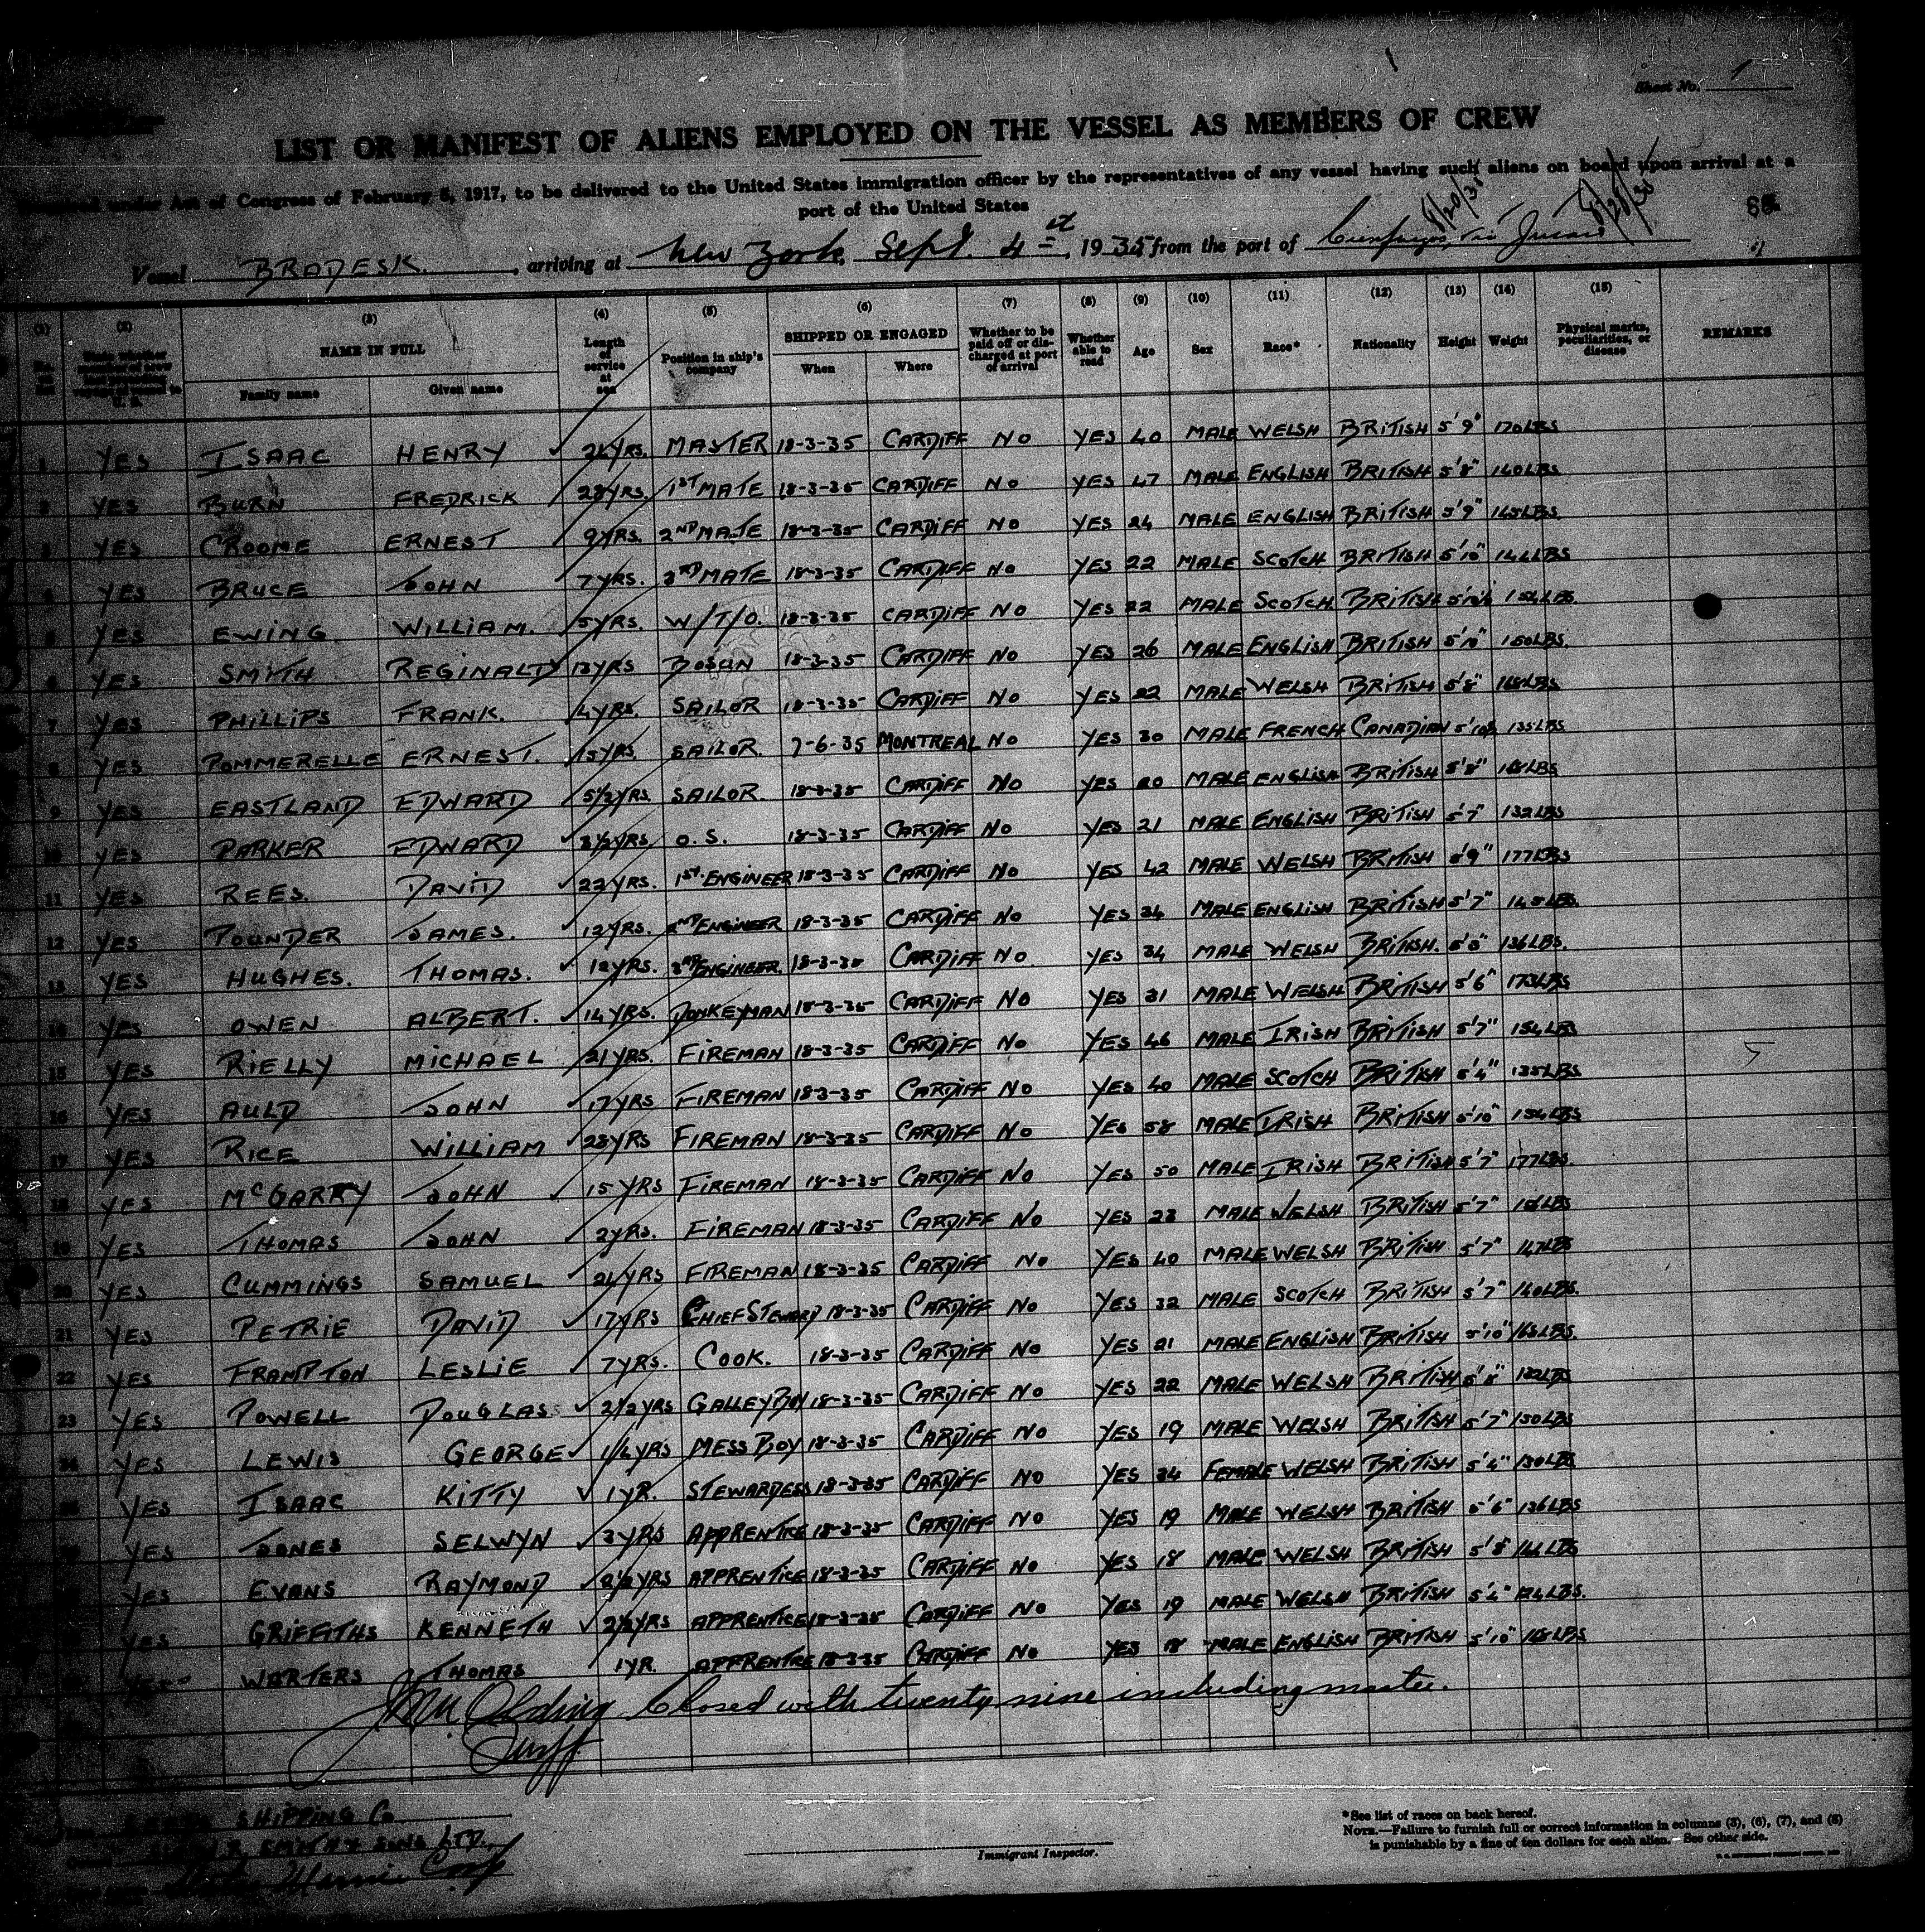 Sheet No. 1
LIST OR MANIFEST OF ALIENS EMPLOYED ON THE VESSEL AS MEMBERS OF CREW
under Act of Congress of February 5, 1917, to be delivered to the United States immigration officer by the representatives of any vessel having such aliens on board upon arrival at a
port of the United States
Vessel BRADESK. , arriving at New York, Sept. 4th, 1935 from the port of
(1) (2) (3) (4) (5) (6) (7) (8) (9) (10) (11) (12) (13) (14) (15)
NAME IN FULL Family name Given name Length of service at sea Position in ship's company SHIPPED OR ENGAGED When Where Whether to be paid off or discharged at port of arrival Whether able to read Age Sex Race* Nationality Height Weight Physical marks, peculiarities, or disease REMARKS
1 YES ISAAC HENRY MASTER 18-3-35 CARDIFF NO YES 40 MALE WELSH BRITISH 5'9" 170LBS
2 YES BURN FREDRICK 28YRS. 1ST MATE 18-3-35 CARDIFF NO YES 47 MALE ENGLISH BRITISH 5'8" 140LBS
3 YES CROOME ERNEST 9YRS. 2ND MATE 18-3-35 CARDIFF NO YES 24 MALE ENGLISH BRITISH 5'9" 145LBS
4 YES BRUCE JOHN 7YRS. 3RD MATE 18-3-35 CARDIFF NO YES 22 MALE SCOTCH BRITISH 5'10" 144LBS
5 YES EWING WILLIAM. 5YRS. W/T/O. 18-3-35 CARDIFF NO YES 22 MALE SCOTCH BRITISH 154LBS.
6 YES SMITH REGINALD 13YRS BOSUN 18-3-35 CARDIFF NO YES 26 MALE ENGLISH BRITISH 5'10" 150LBS.
7 YES PHILLIPS FRANK. 4YRS. SAILOR 18-3-35 CARDIFF NO YES 22 MALE WELSH BRITISH 5'8" 168LBS
8 YES POMMERELLE ERNEST. 15YRS. SAILOR. 7-6-35 MONTREAL NO YES 30 MALE FRENCH CANADIAN 135LBS
9 YES EASTLAND EDWARD 5½YRS. SAILOR. 18-3-35 CARDIFF NO YES 20 MALE ENGLISH BRITISH 5'8" 168LBS
10 YES PARKER EDWARD 3½YRS O.S. 18-3-35 CARDIFF NO YES 21 MALE ENGLISH BRITISH 5'7" 132LBS
11 YES REES. DAVID 22YRS. 1ST ENGINEER 18-3-35 CARDIFF NO YES 42 MALE WELSH BRITISH 5'9" 177LBS
12 YES POUNDER JAMES. 12YRS. 2ND ENGINEER 18-3-35 CARDIFF NO YES 34 MALE ENGLISH BRITISH 5'7" 145LBS
13 YES HUGHES. THOMAS. 12YRS. 3RD ENGINEER. 18-3-35 CARDIFF NO YES 34 MALE WELSH BRITISH. 5'8" 136LBS.
14 YES OWEN ALBERT. 14YRS. DONKEYMAN 18-3-35 CARDIFF NO YES 31 MALE WELSH BRITISH 5'6" 173LBS
15 YES RIELLY MICHAEL 21YRS. FIREMAN 18-3-35 CARDIFF NO YES 46 MALE IRISH BRITISH 5'7" 154LBS
16 YES AULD JOHN 17YRS FIREMAN 18-3-35 CARDIFF NO YES 40 MALE SCOTCH BRITISH 5'4" 135LBS
17 YES RICE WILLIAM 28YRS FIREMAN 18-3-35 CARDIFF NO YES 58 MALE IRISH BRITISH 5'10" 154LBS
18 YES McGARRY JOHN 15YRS FIREMAN 18-3-35 CARDIFF NO YES 50 MALE IRISH BRITISH 5'7" 177LBS.
19 YES THOMAS JOHN 2YRS. FIREMAN 18-3-35 CARDIFF NO YES 23 MALE WELSH BRITISH 5'7"
20 YES CUMMINGS SAMUEL 24YRS FIREMAN 18-3-35 CARDIFF NO YES 40 MALE WELSH BRITISH 5'7" 147LBS
21 YES PETRIE DAVID 17YRS CHIEF STEWARD 18-3-35 CARDIFF NO YES 32 MALE SCOTCH BRITISH 5'7" 140LBS.
22 YES FRAMPTON LESLIE 7YRS. COOK. 18-3-35 CARDIFF NO YES 21 MALE ENGLISH BRITISH 5'10" 165LBS.
23 YES POWELL DOUGLAS 2½YRS GALLEYBOY 18-3-35 CARDIFF NO YES 22 MALE WELSH BRITISH 5'8" 132LBS
24 YES LEWIS GEORGE 1¼YRS MESS BOY 18-3-35 CARDIFF NO YES 19 MALE WELSH BRITISH 5'7" 130LBS
25 YES ISAAC KITTY 1YR. STEWARDESS 18-3-35 CARDIFF NO YES 34 FEMALE WELSH BRITISH 5'4" 130LBS
YES JONES SELWYN 3YRS APPRENTICE 18-3-35 CARDIFF NO YES 19 MALE WELSH BRITISH 5'6" 136LBS
YES EVANS RAYMOND 2½YRS APPRENTICE 18-3-35 CARDIFF NO YES 18 MALE WELSH BRITISH 5'8" 144LBS
YES GRIFFITHS KENNETH 2½YRS APPRENTICE 18-3-35 CARDIFF NO YES 19 MALE WELSH BRITISH 5'4" 124LBS.
YES WARTERS THOMAS 1YR. APPRENTICE 18-3-35 CARDIFF NO YES 18 MALE ENGLISH BRITISH 5'10" 168LBS
Closed with twenty nine including master.
SHIPPING Co
SMITH & SONS LTD.
*See list of races on back hereof.
NOTE.—Failure to furnish full or correct information in columns (3), (6), (7), and (8)
is punishable by a fine of ten dollars for each alien. See other side.
Immigrant Inspector.